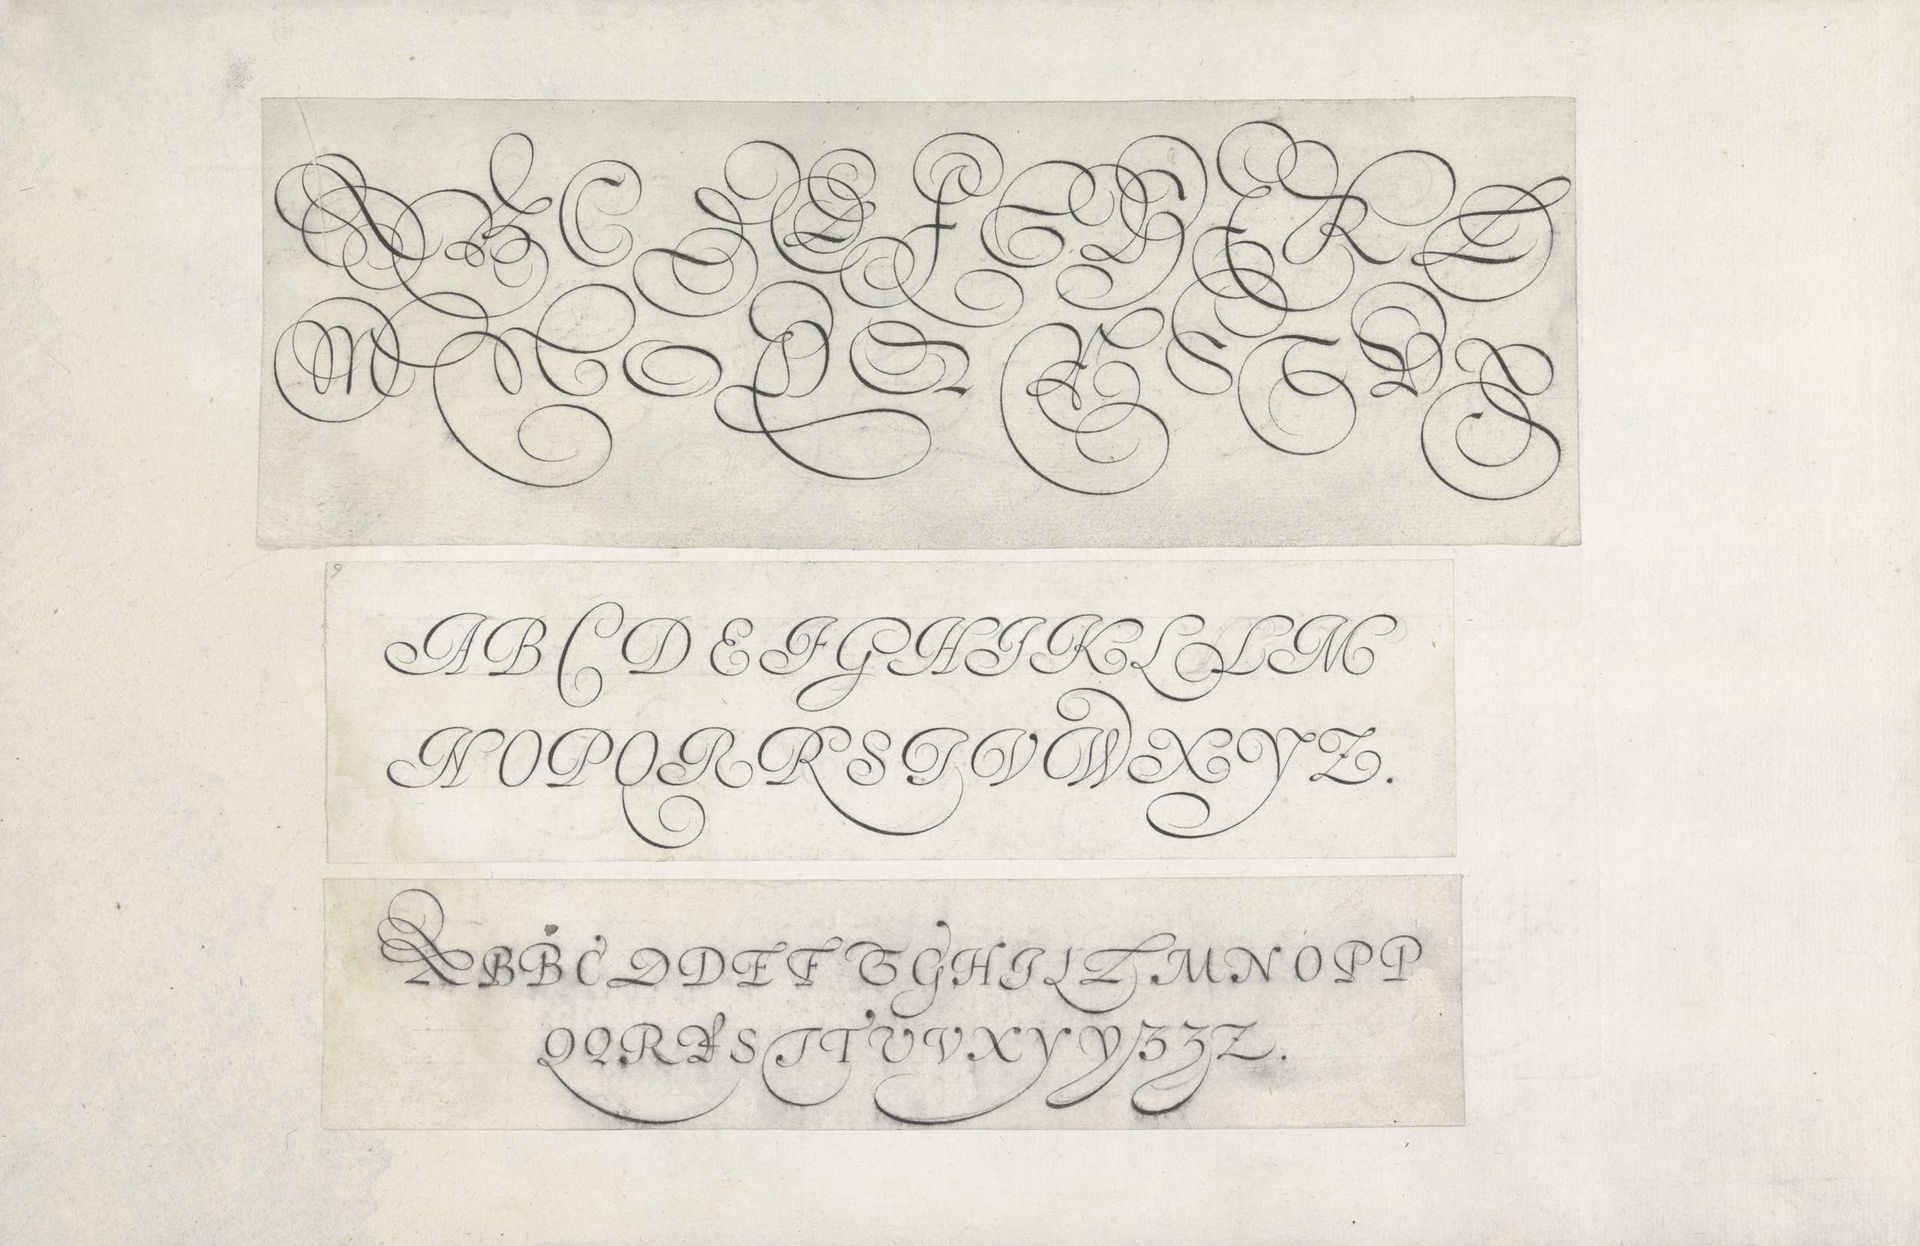 A B C D E F G H I K L
M N O P Q R S T V X
9
A B C D E F G H I K L L M
N O P Q R R S T V W X Y Z.
A B B C D D E F G G H I L L M N O P P
Q Q R R S T T U V X Y Y Z Z Z.